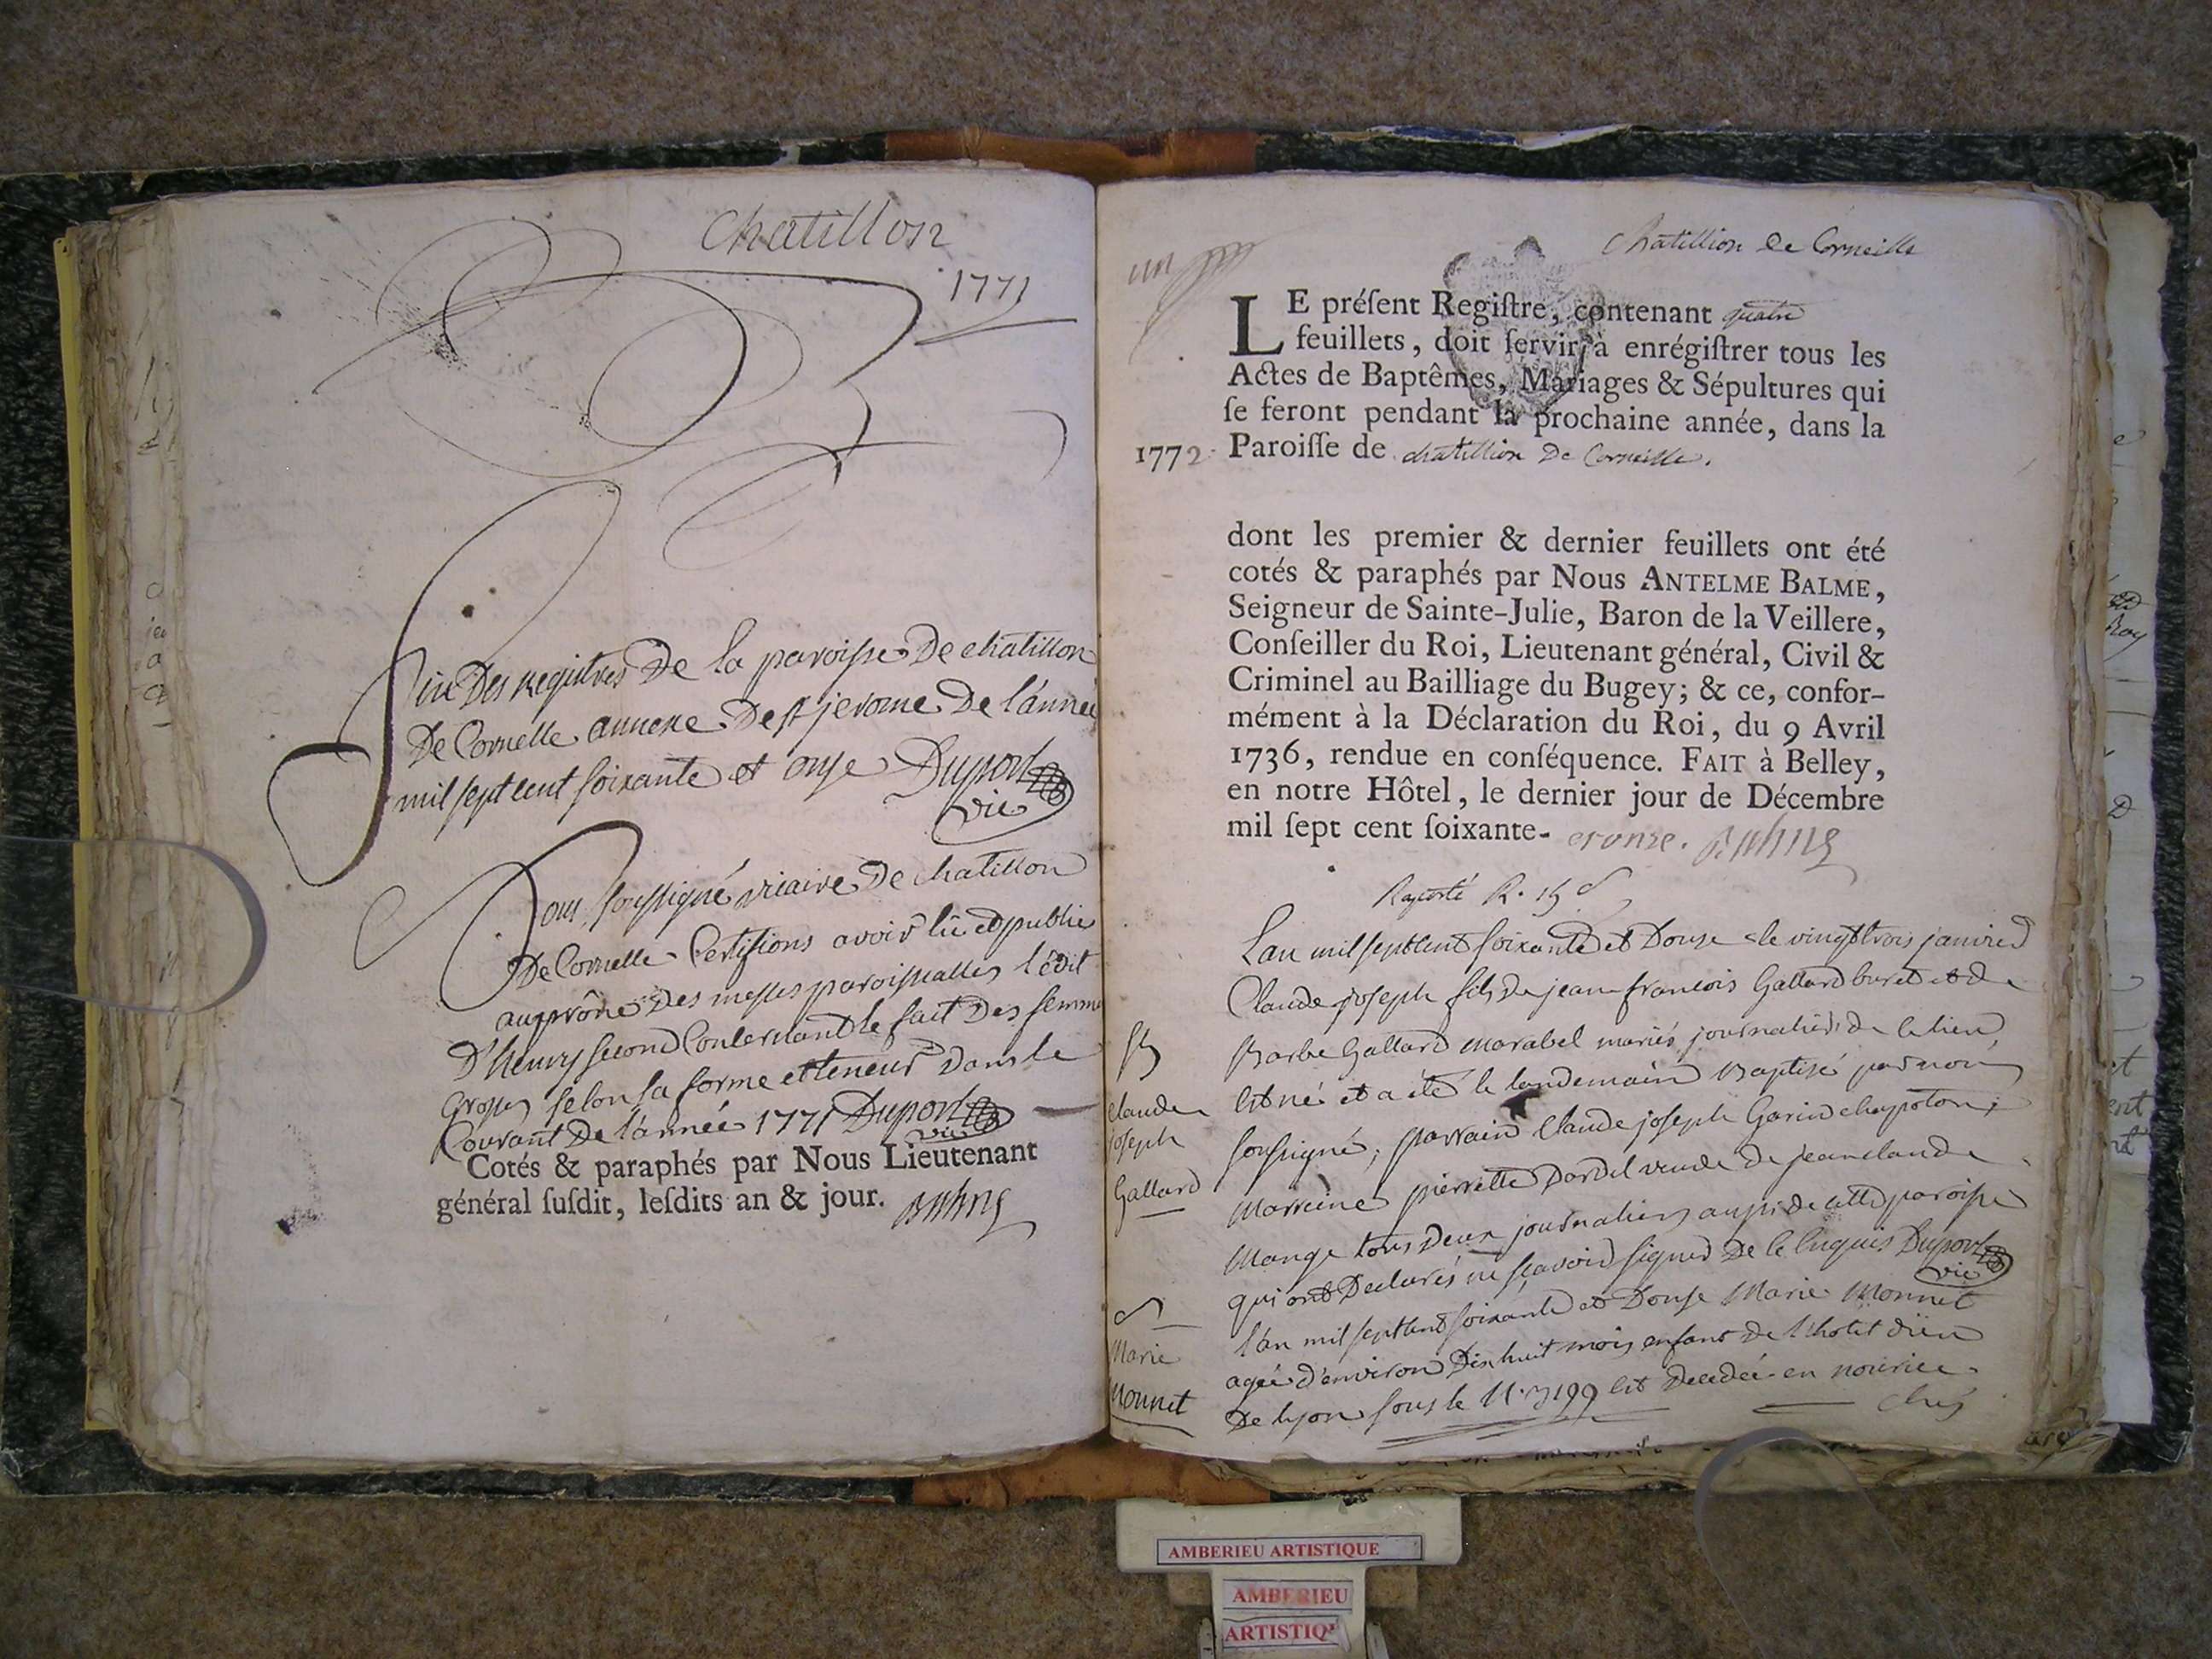 Chatillon
1771
fin Des registres De la paroisse De chatillon
De Cornelle annexe De st jerome De l'année
mil sept cent soixante et onse Duport
vic
Nous soussigné vicaire De chatillon
De Cornelle Certifions avoir lû et publié
au prône Des messes paroissialles l'édit
D'henry second Concernant le fait Des femmes
Grosses selon sa forme et teneur Dans le
Courant De l'année 1771 Duport
vic
Cotés & paraphés par Nous Lieutenant
général ſuſdit, leſdits an & jour. Balme
un
Chatillion De Corneille
LE préſent Regiſtre, contenant quatre
feuillets, doit ſervir à enrégiſtrer tous les
Actes de Baptêmes, Mariages & Sépultures qui
ſe feront pendant la prochaine année, dans la
1772 Paroiſſe de chatillion De Corneille.
dont les premier & dernier feuillets ont été
cotés & paraphés par Nous ANTELME BALME,
Seigneur de Sainte-Julie, Baron de la Veillere,
Conſeiller du Roi, Lieutenant général, Civil &
Criminel au Bailliage du Bugey; & ce, confor-
mément à la Déclaration du Roi, du 9 Avril
1736, rendue en conſéquence. FAIT à Belley,
en notre Hôtel, le dernier jour de Décembre
mil ſept cent ſoixante- et onze. Balme
L'an mil sept cent soixante et Douse le vingt trois janvier
Claude joseph fils de jean francois Gallard buret et de
Barbe Gallard marabel mariés journaliers de ce lieu
est né et a été le landemain Baptisé par nous
soussigné; parrain Claude joseph Garin chapoton;
Marreine pierrette Dardel veuve de jean claude
Mange tous Deux journaliers aussi de cette paroisse
qui ont Declarés ne sçavoir signer De ce Enquis Duport
vic
Claude
joseph
Gallard
l'an mil sept cent soixante et Douse Marie Monnet
agée d'environ Dix huit mois enfant de l'hotel dieu
De lyon sous le N. 3199 est Decedée en nourice
chés
Marie
Monnet
AMBERIEU ARTISTIQUE
AMBERIEU
ARTISTIQ